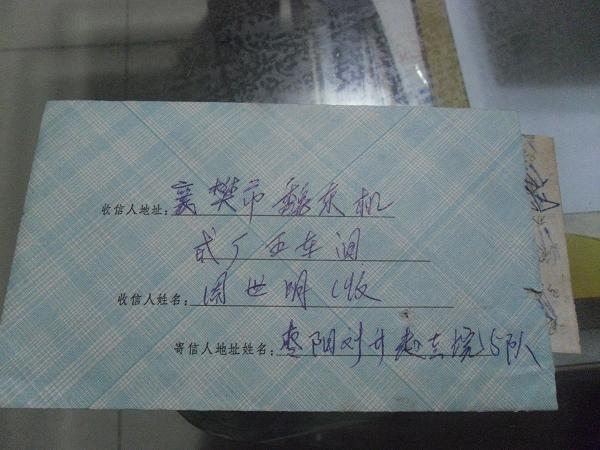 收信人地址：襄樊市 东机
式厂五车间
收信人姓名：周世明（收
寄信人地址姓名：枣阳刘升赵 5队